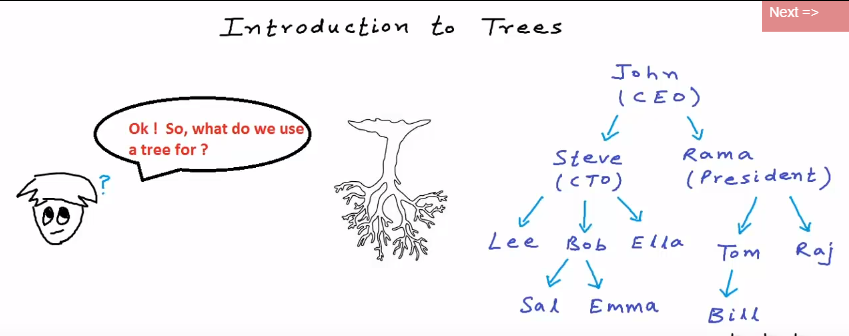 Next =>
Introduction to Trees
Ok ! So, what do we use
a tree for ?
?
John
(CEO)
Steve
(CTO)
Rama
(President)
Lee Bob Ella
Tom Raj
Sal Emma
Bill